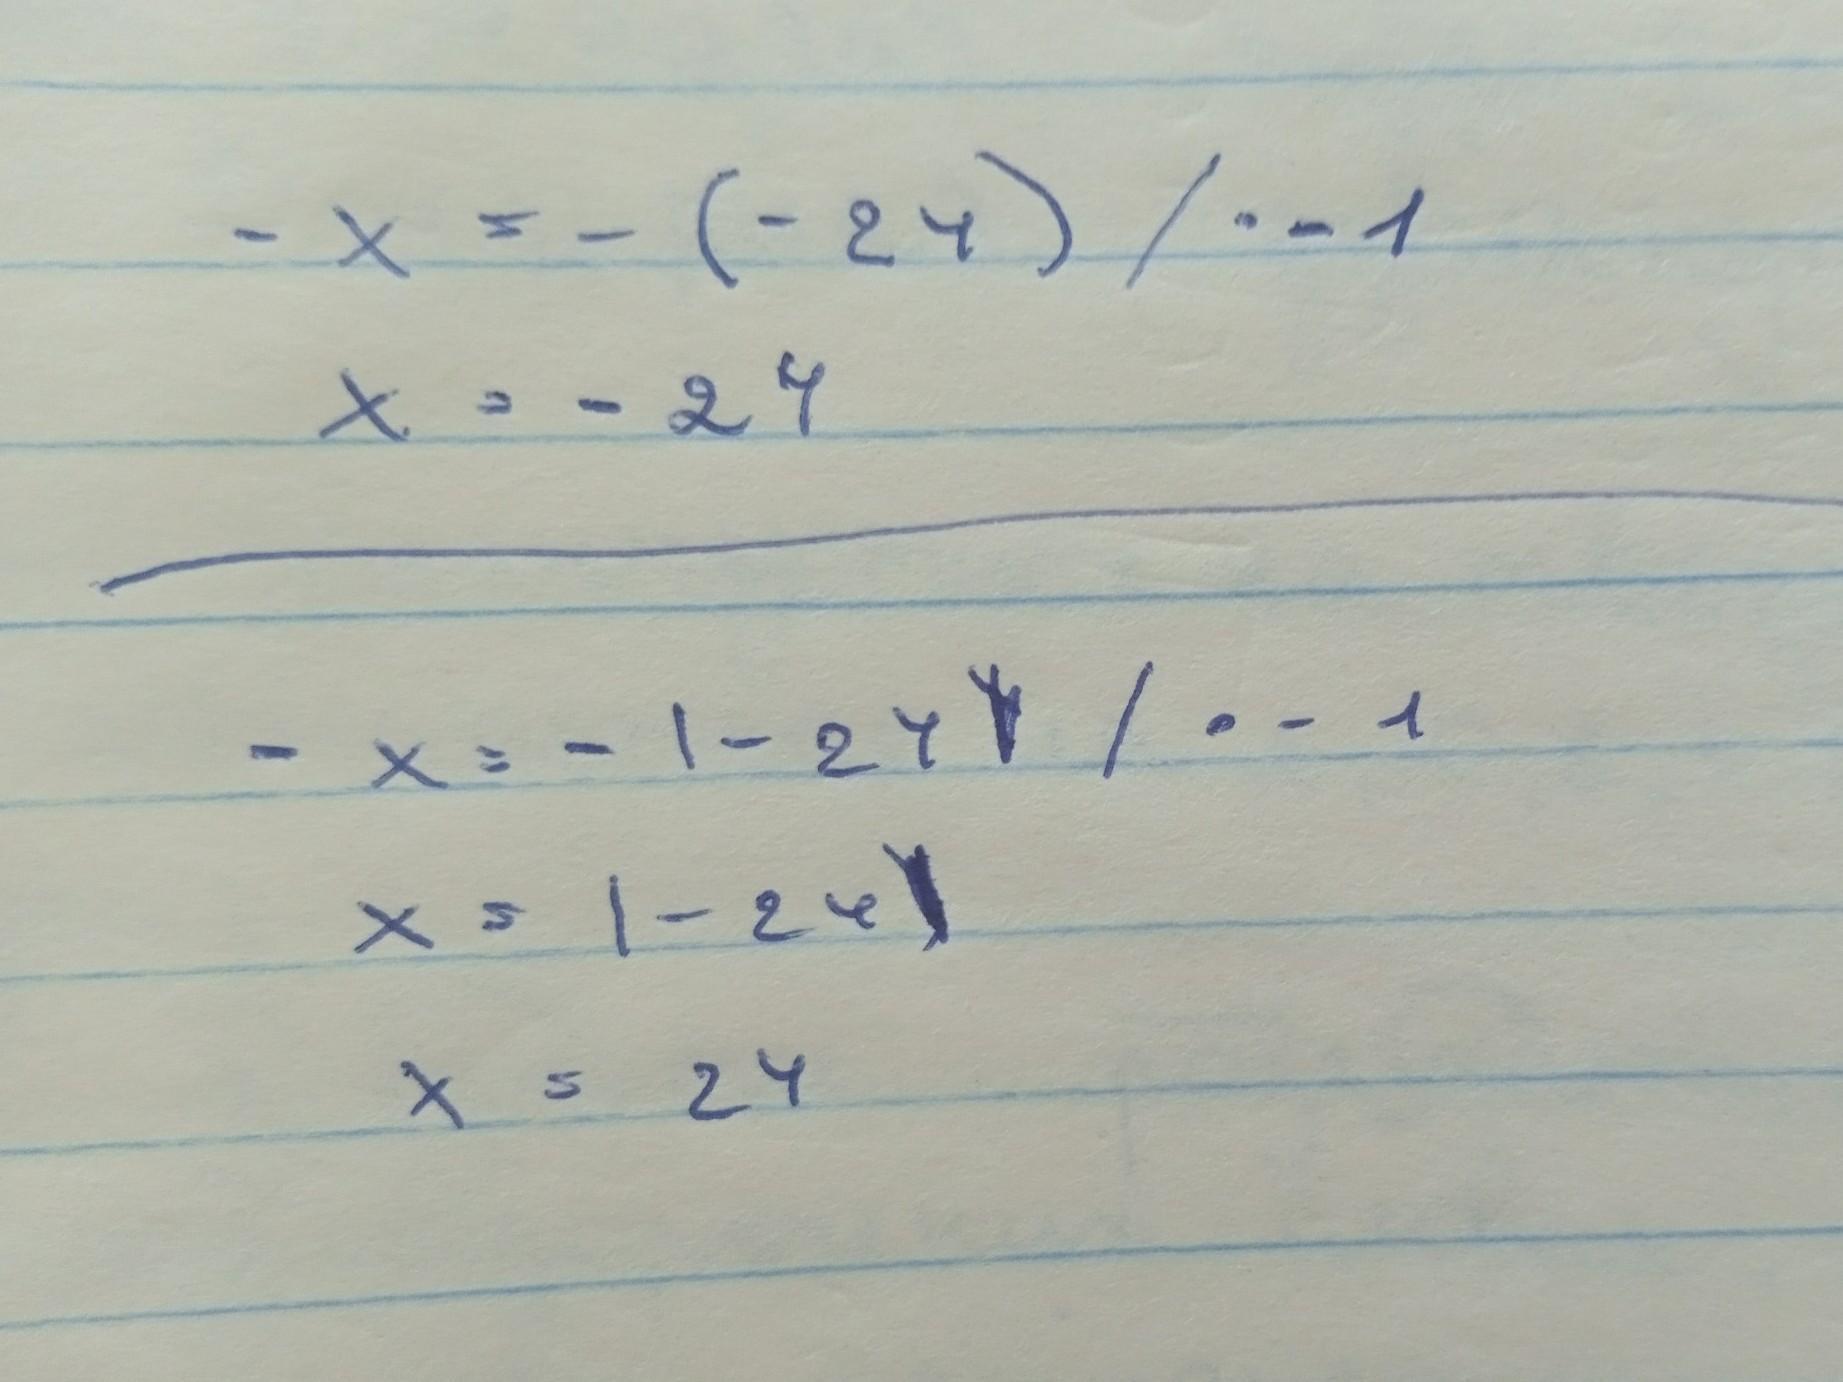 - x = - (- 24) / · - 1
x = - 24
- x = - |- 24| / · - 1
x = |- 24|
x = 24